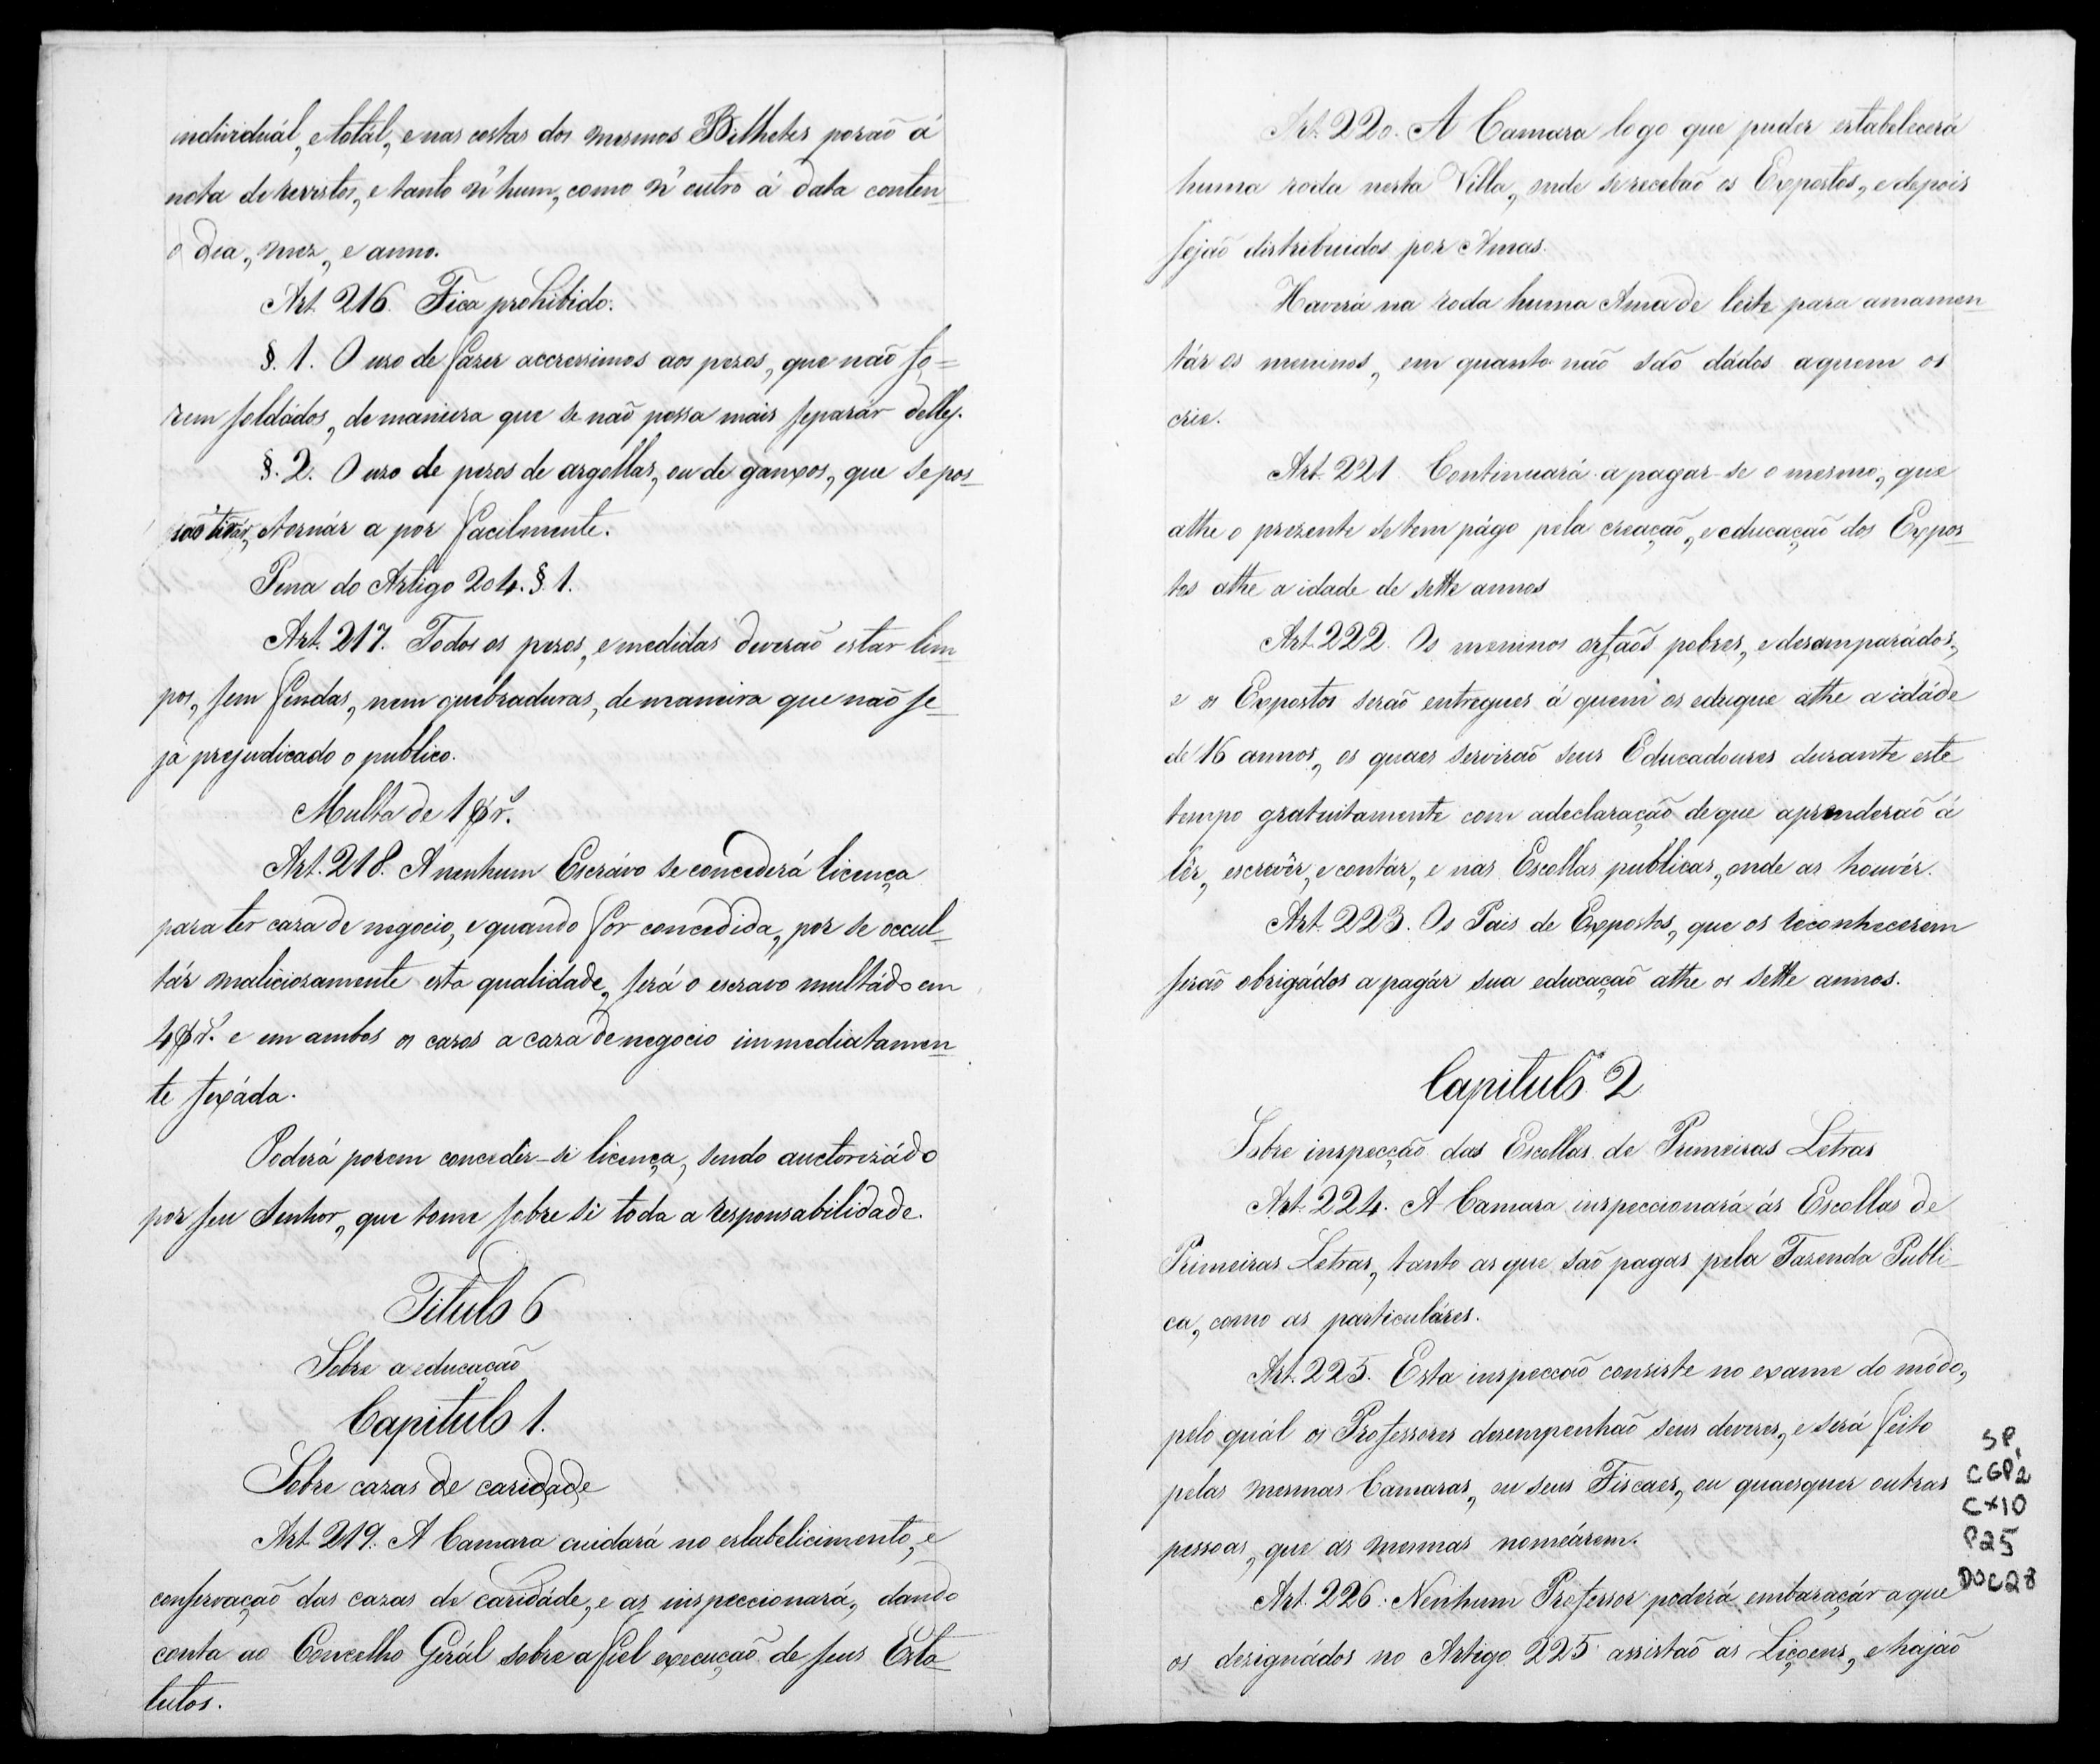 individuál, e totál, e nas costas dos mesmos Bilhetes porão á
nota de revistos, e tanto n'hum, como n'outro á data conten
o dia, mez, e anno.
Art. 216. Fica prohibido.
§. 1. O uzo de fazer accressimos aos pezos, que não fo=
rem soldádos, de maneira que se não possa mais separár delles.
§. 2. O uzo de pezos de argollas, ou de ganxos, que se pos-
são tirár, e tornár a por facilmente.
Pena do Artigo 204. § 1.
Art. 217. Todos os pezos, e medidas deverão estar lim-
pos, sem fendas, nem quebraduras, de maneira que não se-
ja prejudicado o publico.
Multa de 1$r.^s
Art. 218. A nenhum Escrávo se concederá licença
para ter caza de negocio, e quando for concedida, por se occul-
tár maliciozamente esta qualidade, será o escravo multádo em
4$r.^s e em ambos os cazos a caza de negocio immediatamen-
te fexáda.
Poderá porem conceder-se licença, sendo auctorizádo
por seu Senhor, que tome sobre si toda a responsabilidade.
Titulo 6
Sobre a educação
Capitulo 1.
Sobre cazas de caridade
Art. 219. A Camara cuidará no estabelicimento, e
conservação das cazas de caridáde, e as inspeccionará, dando
conta ao Concelho Gerál sobre a fiel execução de seus Esta-
tutos.
Art. 220. A Camara logo que puder estabelecerá
huma roda nesta Villa, onde se recebão os Expostos, e depois
sejão distribuidos por Amas.
Haverá na roda huma Ama de leite para amamen-
tár os meninos, em quanto não são dádos a quem os
crie.
Art. 221. Continuará a pagar-se o mesmo, que
athe o prezente se tem págo pela creação, e educação dos Expos-
tos athe a idade de sette annos
Art. 222. Os meninos orfãos pobres, e desamparádos,
e os Expostos serão entregues á quem os eduque athe a idáde
de 16 annos, os quaes servirão seus Educadoures durante este
tempo gratuitamente com a declaração de que aprenderão á
lêr, escrevêr, e contár, e nas Escollas publicas, onde as houvér.
Art. 223. Os Pais de Expostos, que os reconhecerem
serão obrigádos a pagár sua educação athe os sette annos.
Capitulo 2
Sobre inspecção das Escollas de Primeiras Letras
Art. 224. A Camara inspeccionará ás Escollas de
Primeiras Letras, tanto as que são pagas pela Fazenda Publi-
ca, como as particuláres.
Art. 225. Esta inspeccão consiste no exame do módo,
pelo quál os Professores desempenhão seus deveres, e será feito
pelas mesmas Camaras, ou seus Fiscaes, ou quaesquer outras
pessoas, que as mesmas nomeárem.
Art. 226. Nenhum Professor poderá embaraçár a que
os dezignádos no Artigo 225 assistão as Liçoens, e hajão
SP,
CGP2
CX10
P25
DOC28